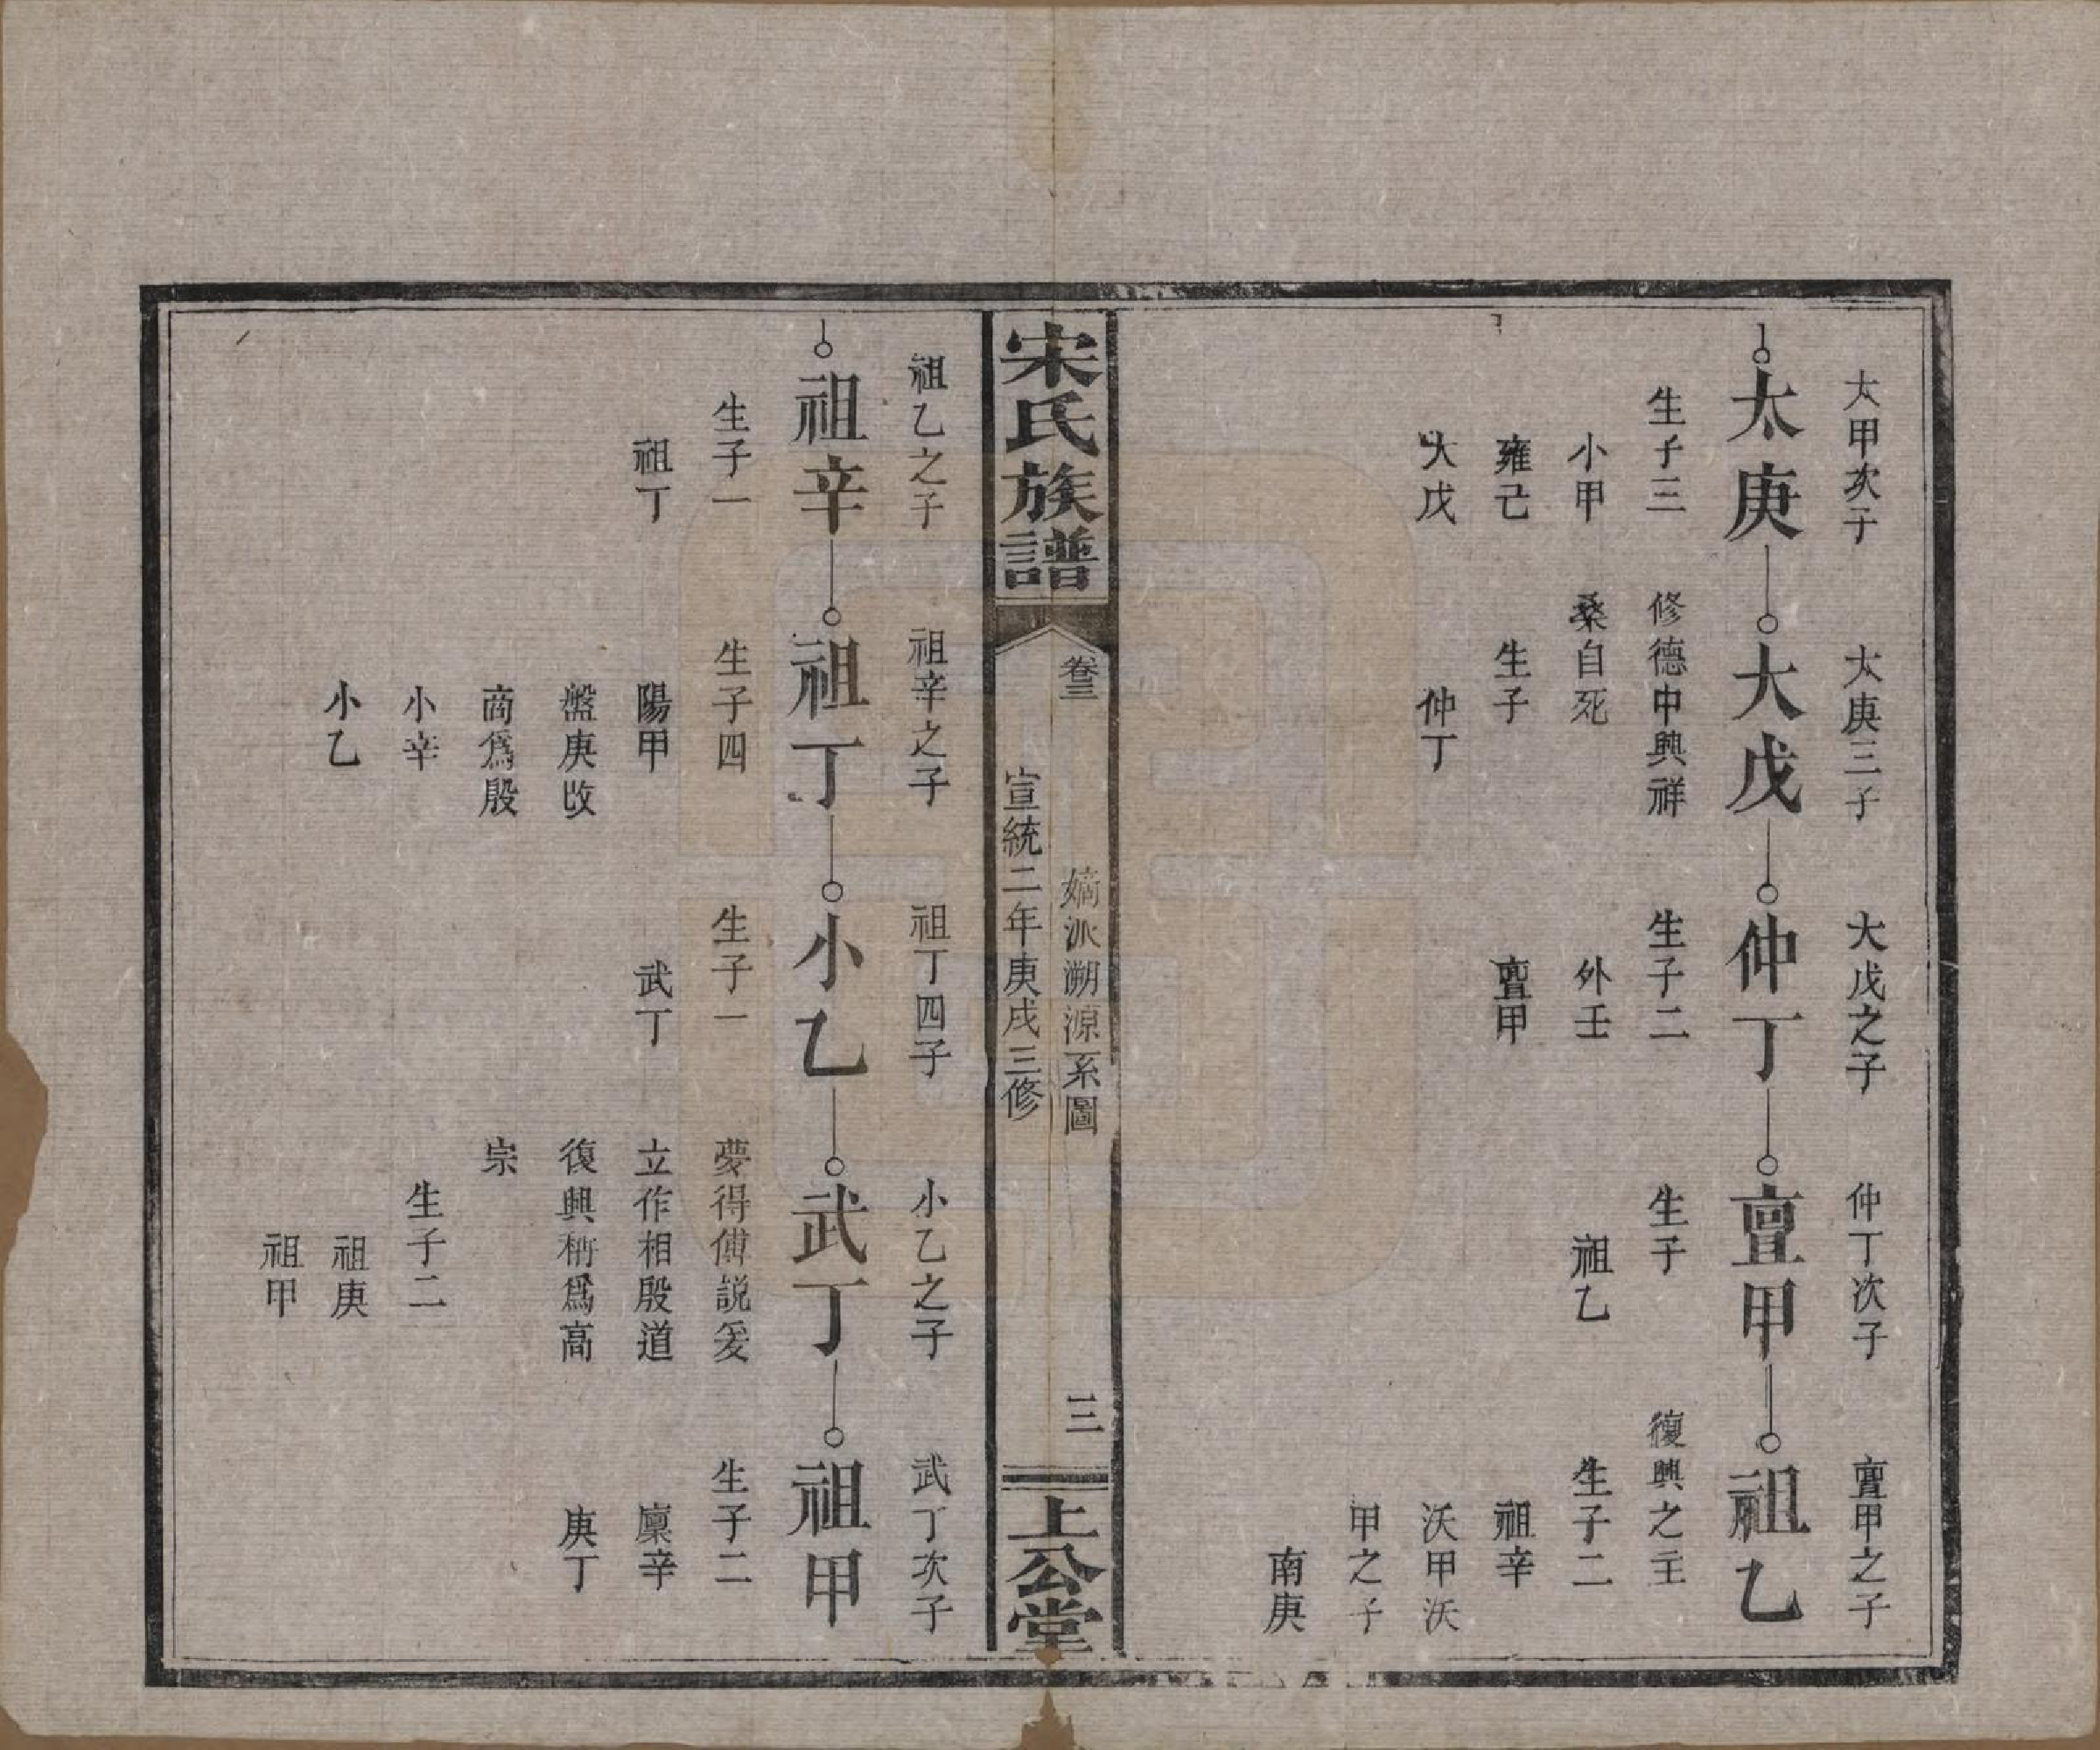 太甲次子
太庚三子
大戊之子
仲丁次子
亶甲之子
太庚
大戊
仲丁
亶甲
祖乙
生子三
修德中興祥
生子二
生子
復興之主
小甲
桑自死
外壬
祖乙
生子二
雍己
生子
亶甲
祖辛
大戊
仲丁
沃甲沃
甲之子
南庚
宋氏族譜
卷三
嫡派溯源系圖
三
宣統二年庚戌三修
上公堂
祖乙之子
祖辛之子
祖丁四子
小乙之子
武丁次子
祖辛
祖丁
小乙
武丁
祖甲
生子一
生子四
生子一
夢得傅説爰
生子二
祖丁
陽甲
武丁
立作相殷道
廪辛
盤庚改
復興稱爲高
庚丁
商爲殷
宗
小辛
生子二
小乙
祖庚
祖甲